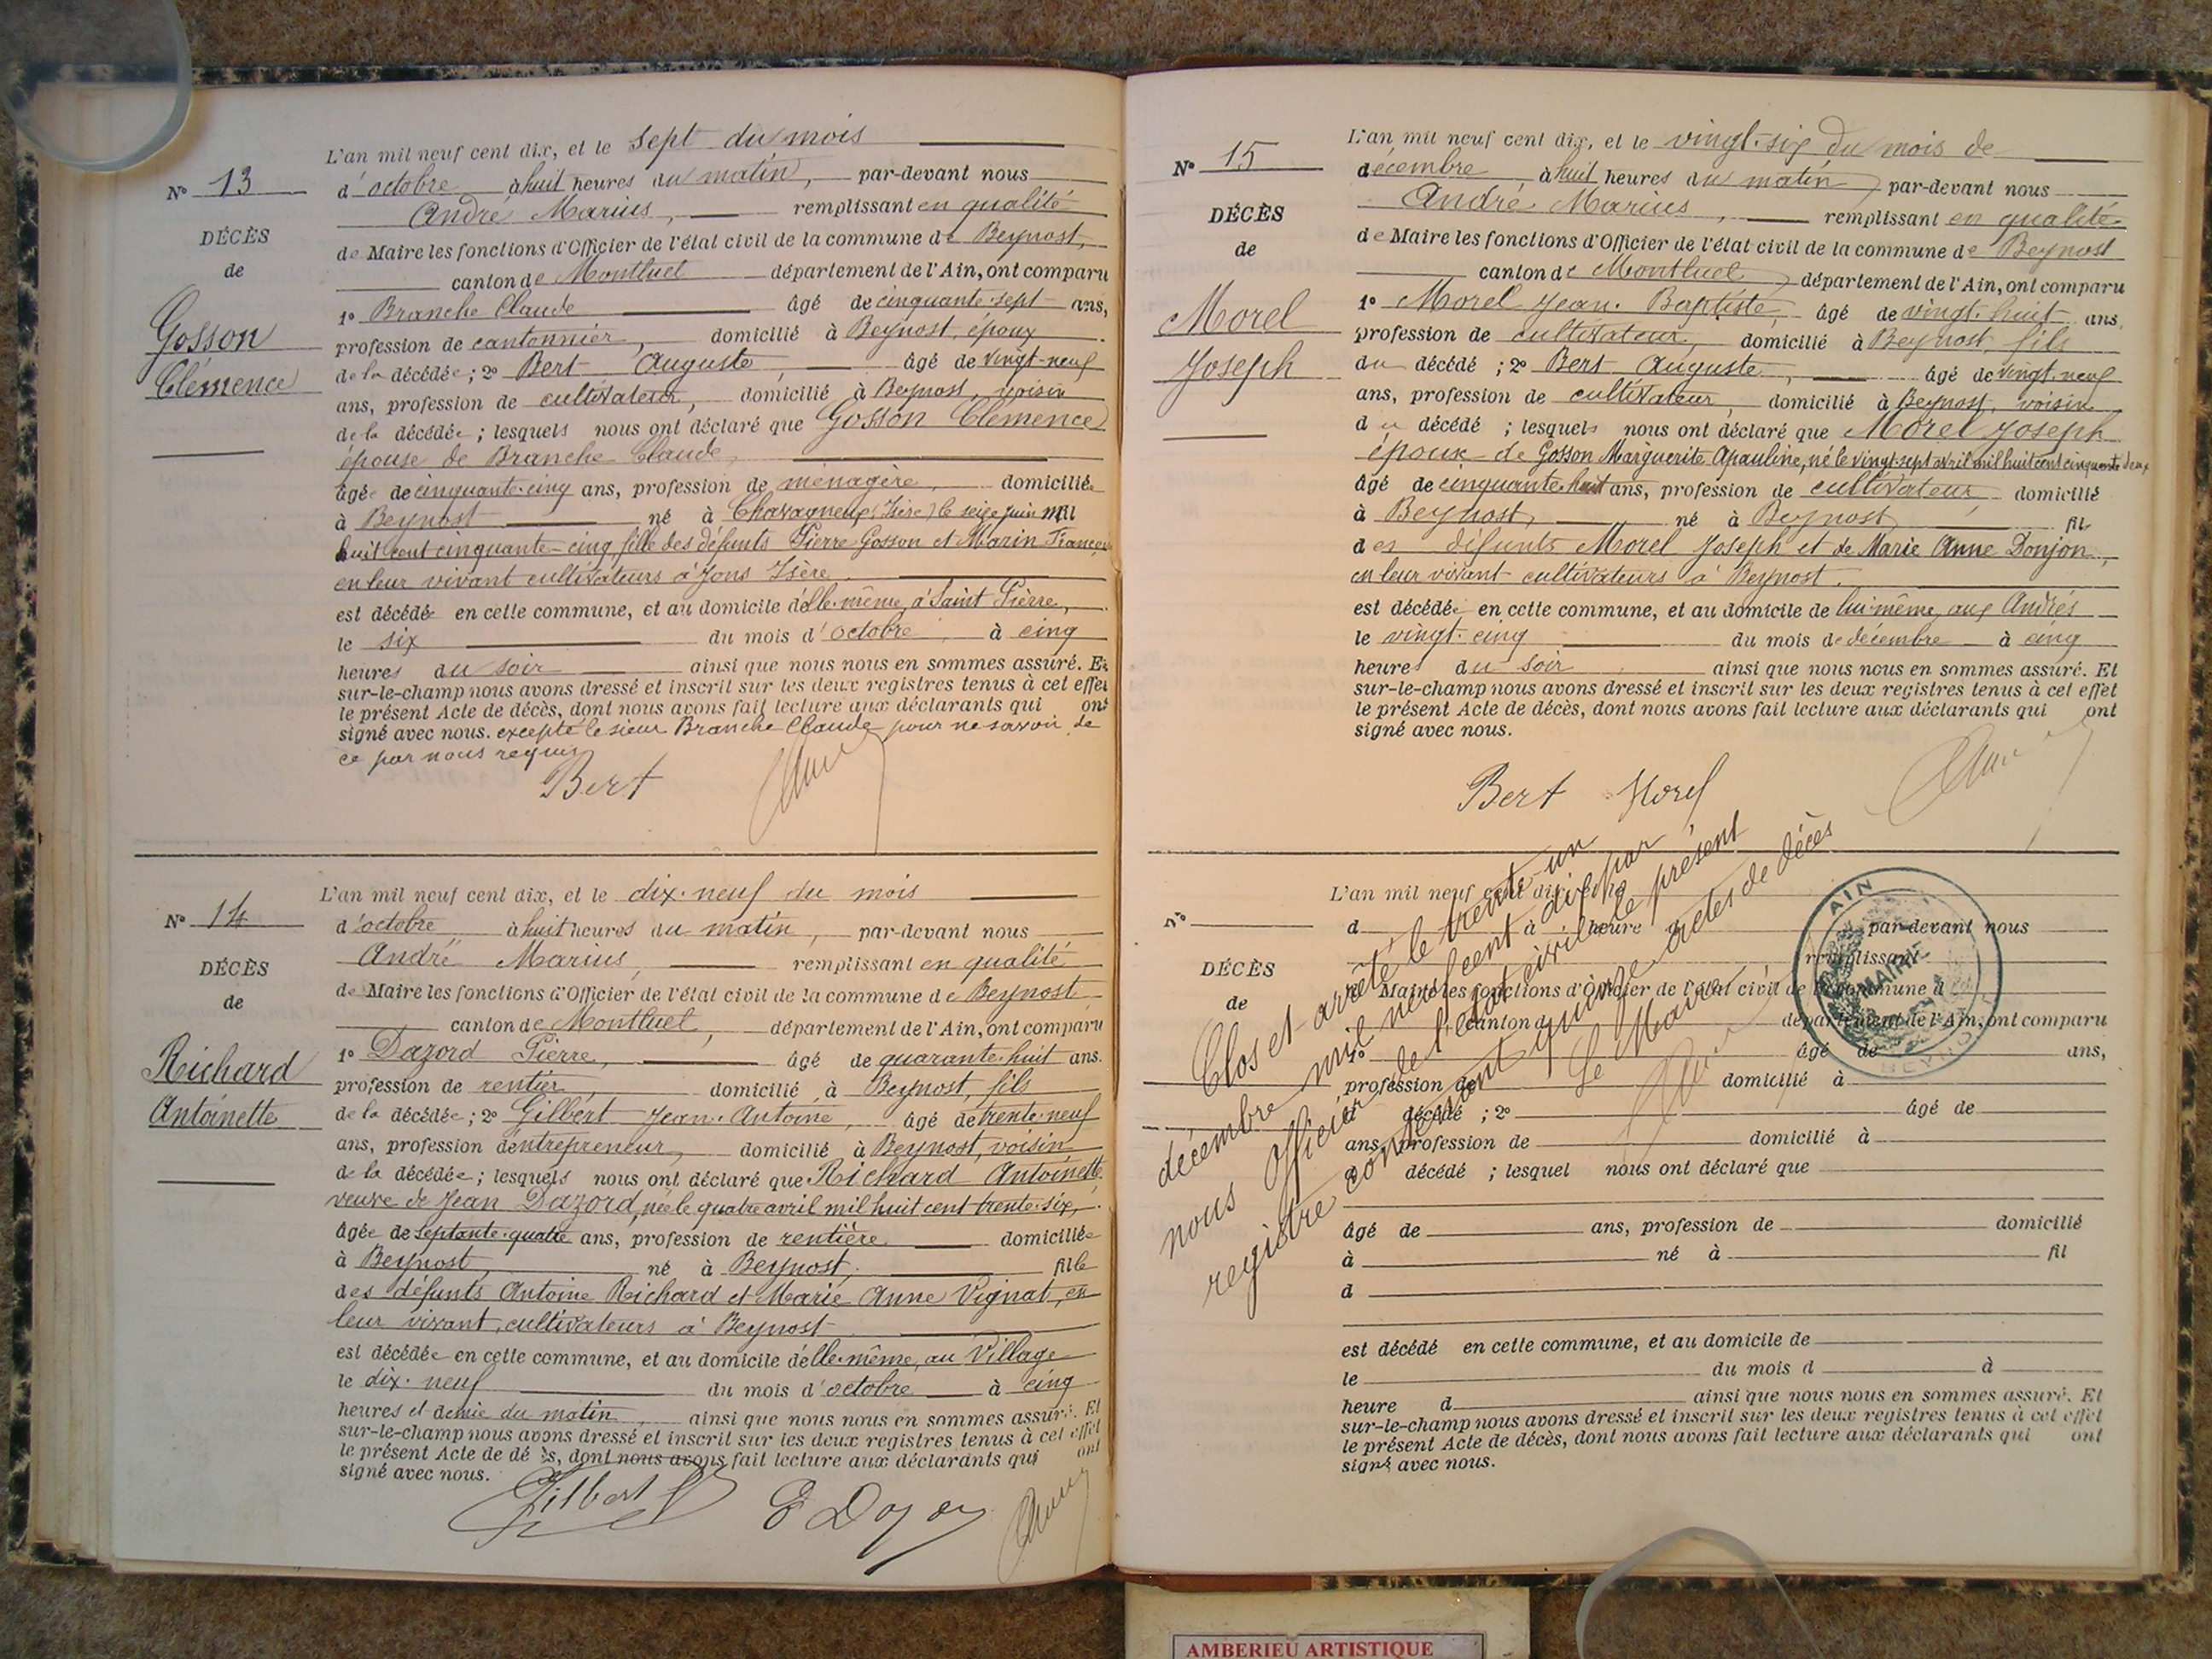 N° 13
DÉCÈS
de
Gosson
Clémence
L'an mil neuf cent dix, et le sept du mois
d'octobre à huit heures du matin, par-devant nous
André Marius, remplissant en qualité
de Maire les fonctions d'Officier de l'état civil de la commune de Beynost,
canton de Montluel département de l'Ain, ont comparu
1° Branche Claude âgé de cinquante-sept ans,
profession de cantonnier, domicilié à Beynost, époux
de la décédée; 2° Bert Auguste, âgé de vingt-neuf
ans, profession de cultivateur, domicilié à Beynost, voisin
de la décédée; lesquels nous ont déclaré que Gosson Clémence
épouse de Branche Claude,
âgée de cinquante-cinq ans, profession de ménagère, domiciliée
à Beynost né à Chavagneux (Isère) le seize juin mil
huit cent cinquante-cinq, fille des défunts Pierre Gosson et Marin Françoise
en leur vivant cultivateurs à Jons Isère.
est décédée en cette commune, et au domicile d'elle-même, à Saint Pierre,
le six du mois d'octobre à cinq
heures du soir ainsi que nous nous en sommes assuré. Et
sur-le-champ nous avons dressé et inscrit sur les deux registres tenus à cet effet
le présent Acte de décès, dont nous avons fait lecture aux déclarants qui ont
signé avec nous. excepté le sieur Branche Claude pour ne savoir de
ce par nous requis
Bert André
N° 14
DÉCÈS
de
Richard
Antoinette
L'an mil neuf cent dix, et le dix-neuf du mois
d'octobre à huit heures du matin, par-devant nous
André Marius, remplissant en qualité
de Maire les fonctions d'Officier de l'état civil de la commune de Beynost
canton de Montluel, département de l'Ain, ont comparu
1° Dazord Pierre, âgé de quarante-huit ans.
profession de rentier, domicilié à Beynost, fils
de la décédée; 2° Gilbert Jean-Antoine, âgé de trente-neuf
ans, profession d'entrepreneur, domicilié à Beynost, voisin
de la décédée; lesquels nous ont déclaré que Richard Antoinette
veuve de Jean Dazord, née le quatre avril mil huit cent trente-six,
âgée de septante-quatre ans, profession de rentière domiciliée
à Beynost, né à Beynost, fille
des défunts Antoine Richard et Marie Anne Vignat, en
leur vivant, cultivateurs à Beynost
est décédée en cette commune, et au domicile d'elle-même, au Village
le dix-neuf du mois d'octobre à cinq
heures et demie du matin, ainsi que nous nous en sommes assuré. Et
sur-le-champ nous avons dressé et inscrit sur les deux registres tenus à cet effet
le présent Acte de décès, dont nous avons fait lecture aux déclarants qui ont
signé avec nous.
Gilbert André
N° 15
DÉCÈS
de
Morel
Joseph
L'an mil neuf cent dix, et le vingt-six du mois de
décembre à huit heures du matin, par-devant nous
André Marius, remplissant en qualité
de Maire les fonctions d'Officier de l'état civil de la commune de Beynost
canton de Montluel, département de l'Ain, ont comparu
1° Morel Jean-Baptiste, âgé de vingt-huit ans,
profession de cultivateur, domicilié à Beynost, fils
du décédé; 2° Bert Auguste, âgé de vingt-neuf
ans, profession de cultivateur, domicilié à Beynost, voisin
du décédé; lesquels nous ont déclaré que Morel Joseph
époux de Gosson Marguerite Apauline, né le vingt-sept avril mil huit cent cinquante deux
âgé de cinquante-huit ans, profession de cultivateur, domicilié
à Beynost, né à Beynost fils
des défunts Morel Joseph et de Marie Anne Donjon,
en leur vivant cultivateurs à Beynost.
est décédé en cette commune, et au domicile de lui-même, aux Andrés
le vingt-cinq du mois de décembre à cinq
heures du soir ainsi que nous nous en sommes assuré. Et
sur-le-champ nous avons dressé et inscrit sur les deux registres tenus à cet effet
le présent Acte de décès, dont nous avons fait lecture aux déclarants qui ont
signé avec nous.
Bert Morel André
N°
DÉCÈS
de
L'an mil neuf cent dix, et le
d à heure d par-devant nous
remplissant
d Maire les fonctions d'Officier de l'état civil de la commune d
canton d département de l'Ain, ont comparu
1° âgé de ans,
profession de domicilié à
d décédé ; 2° âgé de
ans, profession de domicilié à
d décédé ; lesquel nous ont déclaré que
âgé de ans, profession de domicilié
à né à fil
d
est décédé en cette commune, et au domicile de
le du mois d à
heure d ainsi que nous nous en sommes assuré. Et
sur-le-champ nous avons dressé et inscrit sur les deux registres tenus à cet effet
le présent Acte de décès, dont nous avons fait lecture aux déclarants qui ont
signé avec nous.
Clos et arrêté le trente-un
décembre mil neuf cent dix par
nous Officier de l'état civil le présent
registre contenant quinze actes de décès
Le Maire
André
AIN
MAIRIE
BEYNOST
AMBERIEU ARTISTIQUE